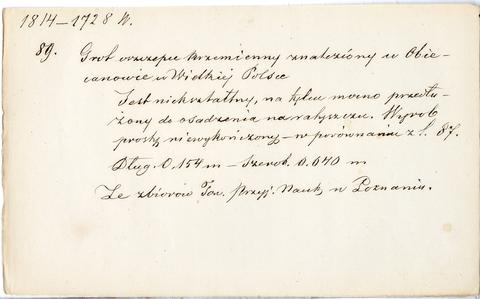 1814-1728 N.
89. Grot oszczepu krzemienny znaleziony w Obie-
canowie w Wielkiej Polsce
Jest niekształtny, na tylcu mocno przedłu-
żony do osadzenia na ratyszczu. Wyrób
prosty niewykończony - w porównaniu z l. 87.
Dług. 0.154 m - Szerok. 0.040 m
Ze zbiorów Tow. Przyj. Nauk w Poznaniu.